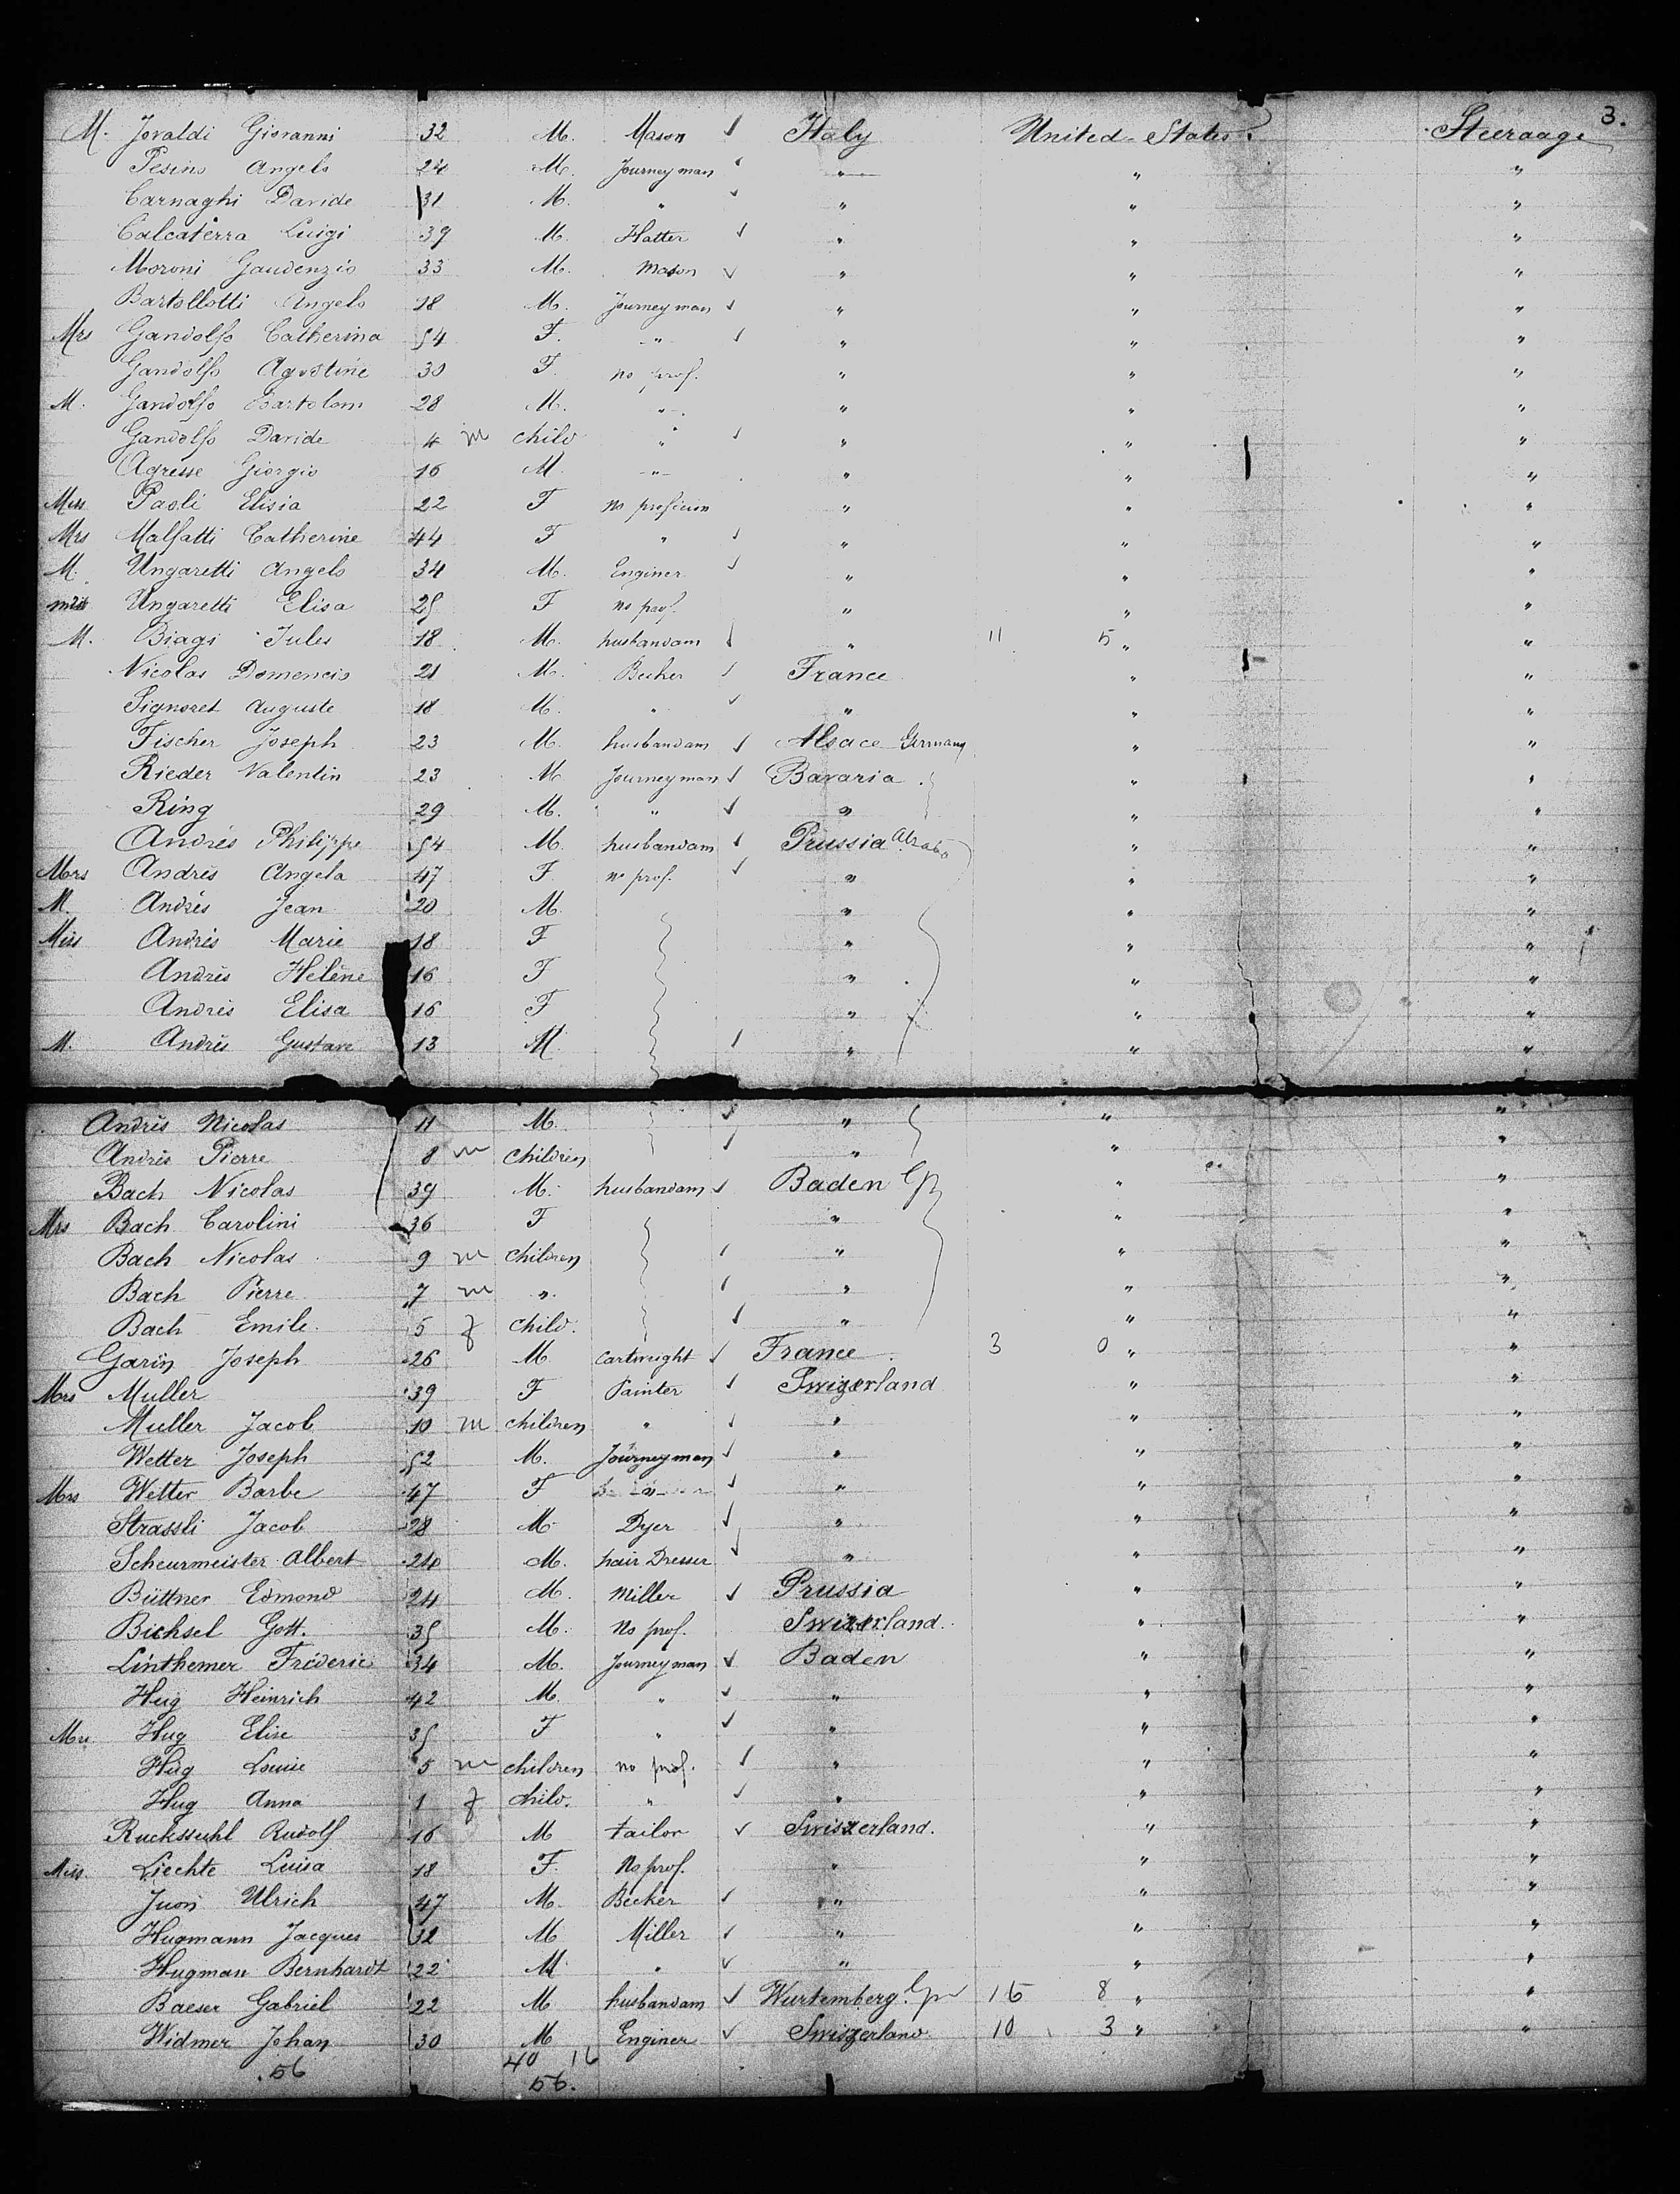 3.
M. Joraldi Giovanni 32 M. Mason ✓ Italy United-States. Steeraage
Pesino Angelo 24 M. Journeyman ✓ " " "
Carnaghi Davide 31 M. " ✓ " " "
Calcaterra Luigi 39 M. Hatter ✓ " " "
Moroni Gaudenzio 33 M. Mason ✓ " " "
Bartollotti Angelo 28 M. Journeyman ✓ " " "
Mrs Gandolfo Catherina 54 F. " ✓ " " "
Gandolfo Agostine 30 F no prof. " " "
M. Gandolfo Bartolom 28 M. " " " "
Gandolfo Davide 4 m child " ✓ " " "
Agresse Giorgio 16 M. " " " "
Miss Paoli Elisia 22 F no profision " " "
Mrs Malfatti Catherine 44 F " ✓ " " "
M. Ungaretti Angelo 34 M. Enginer ✓ " " "
Ungaretti Elisa 25 F no prof. " " "
M. Biagi Jules 18 M. husbandam ✓ " 11 5 " "
Nicolas Domencio 21 M. Becker ✓ France " "
Signoret Auguste 18 M. " ✓ " " "
Fischer Joseph 23 M. husbandam ✓ Alsace Germany " "
Rieder Valentin 23 M Journeyman ✓ Bavaria " "
Ring 29 M. " ✓ " " "
Andrés Philippe 54 M. husbandam ✓ Prussia " "
Mrs Andrés Angela 47 F no prof. ✓ " " "
M. Andrés Jean 20 M. " " "
Miss Andrés Marie 18 F " " "
Andrés Hélène 16 F " " "
Andrés Elisa 16 F " " "
M. Andrés Gustave 13 M ✓ " " "
Andrés Nicolas 11 M. ✓ " " "
Andrés Pierre 8 m children ✓ " " "
Bach Nicolas 39 M. husbandam ✓ Baden " "
Mrs Bach Carolini 36 F " " "
Bach Nicolas 9 m children ✓ " " "
Bach Pierre 7 m " ✓ " " "
Bach Emile. 5 f child. ✓ " " "
Garin Joseph 26 M Cartwright ✓ France 3 0 " "
Mrs Muller 39 F Painter ✓ Swizerland " "
Muller Jacob 10 m children " ✓ " " "
Wetter Joseph 52 M. Journeyman ✓ " " "
Mrs Wetter Barbe 47 F ✓ " " "
Strassli Jacob 28 M Dyer ✓ " " "
Scheurmeister Albert 24 M. hair Dresser ✓ " " "
Büttner Edmond 24 M. Miller ✓ Prussia " "
Bichsel Gott. 35 M. No prof. Swizerland. " "
Linthemer Fréderic 34 M. Journeyman ✓ Baden " "
Hug Heinrich 42 M. " ✓ " " "
Mrs Hug Elise 35 F " ✓ " " "
Hug Louise 5 m children no prof. ✓ " " "
Hug Anna 1 f child. " ✓ " " "
Ruckssuhl Rudolf 16 M tailor ✓ Swiszerland. " "
Miss. Liechte Luisa 18 F. No prof. " " "
Juon Ulrich 47 M. Becker ✓ " " "
Hugmann Jacques 32 M Miller ✓ " " "
Hugman Bernhardt 22 M " ✓ " " "
Baeser Gabriel 22 M husbandam ✓ Wurtemberg 16 8 " "
Widmer Johan 30 M Enginer ✓ Swiszerland. 10 3 " "
40 16
.56 56.